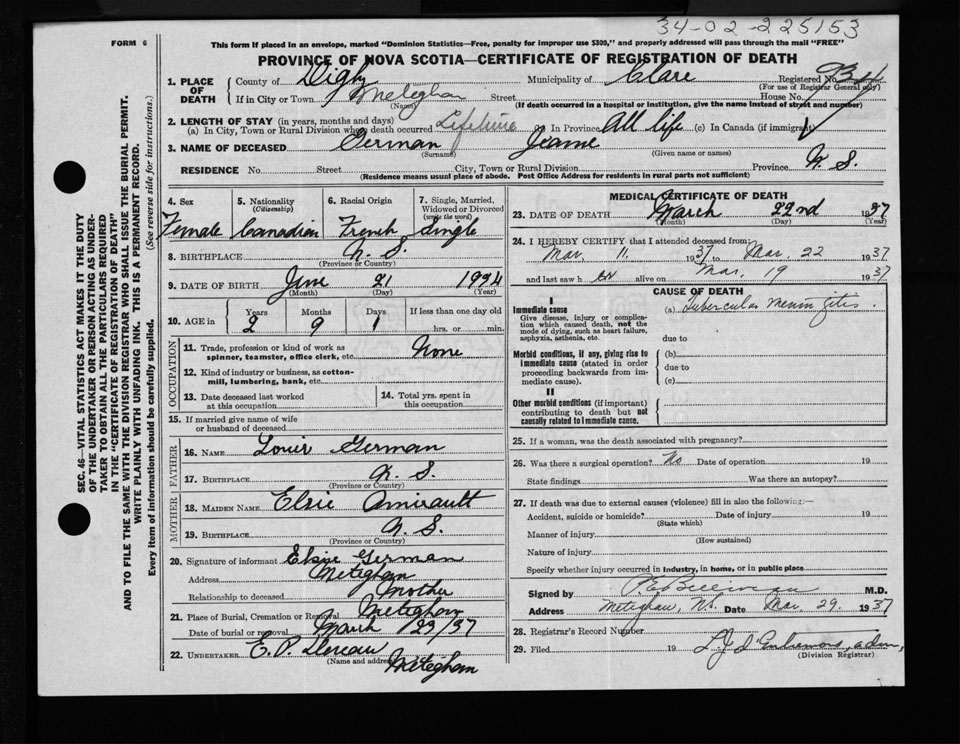 34-02-225153
FORM 6
This form if placed in an envelope, marked "Dominion Statistics—Free, penalty for improper use $300," and properly addressed will pass through the mail "FREE"
PROVINCE OF NOVA SCOTIA—CERTIFICATE OF REGISTRATION OF DEATH
1. PLACE OF DEATH County of Digby Municipality of Clare Registered No. 34
(For use of Registrar General only)
If in City or Town Meteghan Street House No.
(Name) (If death occurred in a hospital or institution, give the name instead of street and number)
2. LENGTH OF STAY (in years, months and days)
(a) In City, Town or Rural Division where death occurred Lifetime (b) In Province All life (c) In Canada (if immigrant)
3. NAME OF DECEASED German Jeanne
(Surname) (Given name or names)
RESIDENCE No. Street City, Town or Rural Division Province N.S.
(Residence means usual place of abode. Post Office Address for residents in rural parts not sufficient)
4. Sex 5. Nationality (Citizenship) 6. Racial Origin 7. Single, Married, Widowed or Divorced (write the word)
Female Canadian French Single
8. BIRTHPLACE N. S.
(Province or Country)
9. DATE OF BIRTH June 21 1934
(Month) (Day) (Year)
10. AGE in Years Months Days If less than one day old
2 9 1 hrs. or min.
OCCUPATION
11. Trade, profession or kind of work as spinner, teamster, office clerk, etc. None
12. Kind of industry or business, as cotton-mill, lumbering, bank, etc.
13. Date deceased last worked at this occupation
14. Total yrs. spent in this occupation
15. If married give name of wife or husband of deceased
FATHER
16. NAME Louis German
17. BIRTHPLACE N. S.
(Province or Country)
MOTHER
18. MAIDEN NAME Elsie Amirault
19. BIRTHPLACE N. S.
(Province or Country)
20. Signature of informant Elsie German
Address Meteghan
Relationship to deceased Mother
21. Place of Burial, Cremation or Removal Meteghan
Date of burial or removal March 23/37
22. UNDERTAKER E. P. Meteghan
(Name and address)
MEDICAL CERTIFICATE OF DEATH
23. DATE OF DEATH March 22nd 1937
(Month) (Day) (Year)
24. I HEREBY CERTIFY that I attended deceased from:
Mar. 11 1937 to Mar. 22 1937
and last saw h er alive on Mar. 19 1937
CAUSE OF DEATH
I
Immediate cause
Give disease, injury or complication which caused death, not the mode of dying, such as heart failure, asphyxia, asthenia, etc.
(a) Tubercular Meningitis.
due to
Morbid conditions, if any, giving rise to immediate cause (stated in order proceeding backwards from immediate cause).
(b)
due to
(c)
II
Other morbid conditions (if important) contributing to death but not causally related to immediate cause.
25. If a woman, was the death associated with pregnancy?
26. Was there a surgical operation? No Date of operation 19
State findings Was there an autopsy?
27. If death was due to external causes (violence) fill in also the following:—
Accident, suicide or homicide? Date of injury 19
(State which)
Manner of injury
(How sustained)
Nature of injury
Specify whether injury occurred in industry, in home, or in public place
Signed by M.D.
Address Meteghan, N.S. Date Mar. 29. 1937
28. Registrar's Record Number
29. Filed 19
(Division Registrar)
SEC. 46—VITAL STATISTICS ACT MAKES IT THE DUTY
OF THE UNDERTAKER OR PERSON ACTING AS UNDER-
TAKER TO OBTAIN ALL THE PARTICULARS REQUIRED
IN THE "CERTIFICATE OF REGISTRATION OF DEATH"
AND TO FILE THE SAME WITH THE DIVISION REGISTRAR WHO SHALL ISSUE THE BURIAL PERMIT.
WRITE PLAINLY WITH UNFADING INK. THIS IS A PERMANENT RECORD.
Every item of information should be carefully supplied. (See reverse side for instructions.)